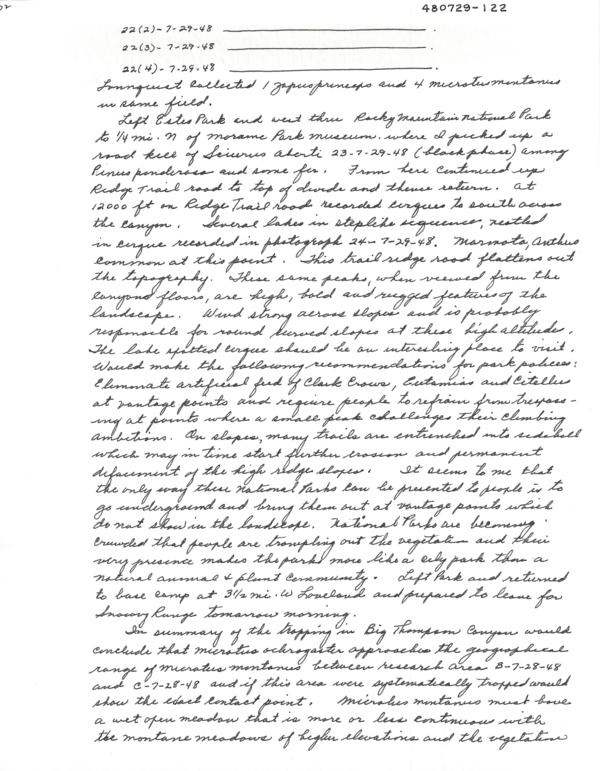 480729-122
22(2)- 7-29-48 ____________ .
22(3)- 7-29-48 ____________ .
22(4)- 7-29-48 ____________ .
Lonnquist collected 1 Zapus princeps and 4 microtus montanus
in same field.
Left Estes Park and went thru Rocky Mountain National Park
to 1/4 mi. N of Moraine Park museum, where I picked up a
road kill of Sciurus aberti 23-7-29-48 (black phase) among
Pinus ponderosa and some fir. From here continued up
Ridge Trail road to top of divide and thence return. At
12000 ft on Ridge Trail road recorded cirques to south across
the canyon. Several lakes in steplike sequence, nestled
in cirque recorded in photograph 24-7-29-48. Marmota, Anthus
common at this point. This trail ridge road flattens out
the topography. These same peaks, when viewed from the
canyond floors, are high, bold and rugged features of the
landscape. Wind strong across slopes and is probably
responsible for round curved slopes at these high altitudes.
The lake spotted cirque should be an interesting place to visit.
Would make the following recommendations for park policies:
Eliminate artificial feed of Clark Crows, Eutamias and Citellus
at vantage points and require people to refrain from trespass-
ing at points where a small peak challenges their climbing
ambitions. On slopes, many trails are entrenched into sidehill
which may in time start further erosion and permanent
defacement of the high ridge slopes. It seems to me that
the only way these National Parks can be presented to people is to
go underground and bring them out at vantage points which
do not show in the landscape. National Parks are becoming
crowded that people are trampling out the vegetation and their
very presence makes the parks more like a city park than a
natural animal & plant community. Left Park and returned
to base camp at 3 1/2 mi. W Loveland and prepared to leave for
Snowy Range tomorrow morning.
In summary of the trapping in Big Thompson Canyon would
conclude that microtus ochrogaster approaches the geographical
range of microtus montanus between research area B-7-28-48
and C-7-28-48 and if this area were systematically trapped would
show the exact contact point. Microtus montanus must have
a wet open meadow that is more or less continuous with
the montane meadows of higher elevations and the vegetation